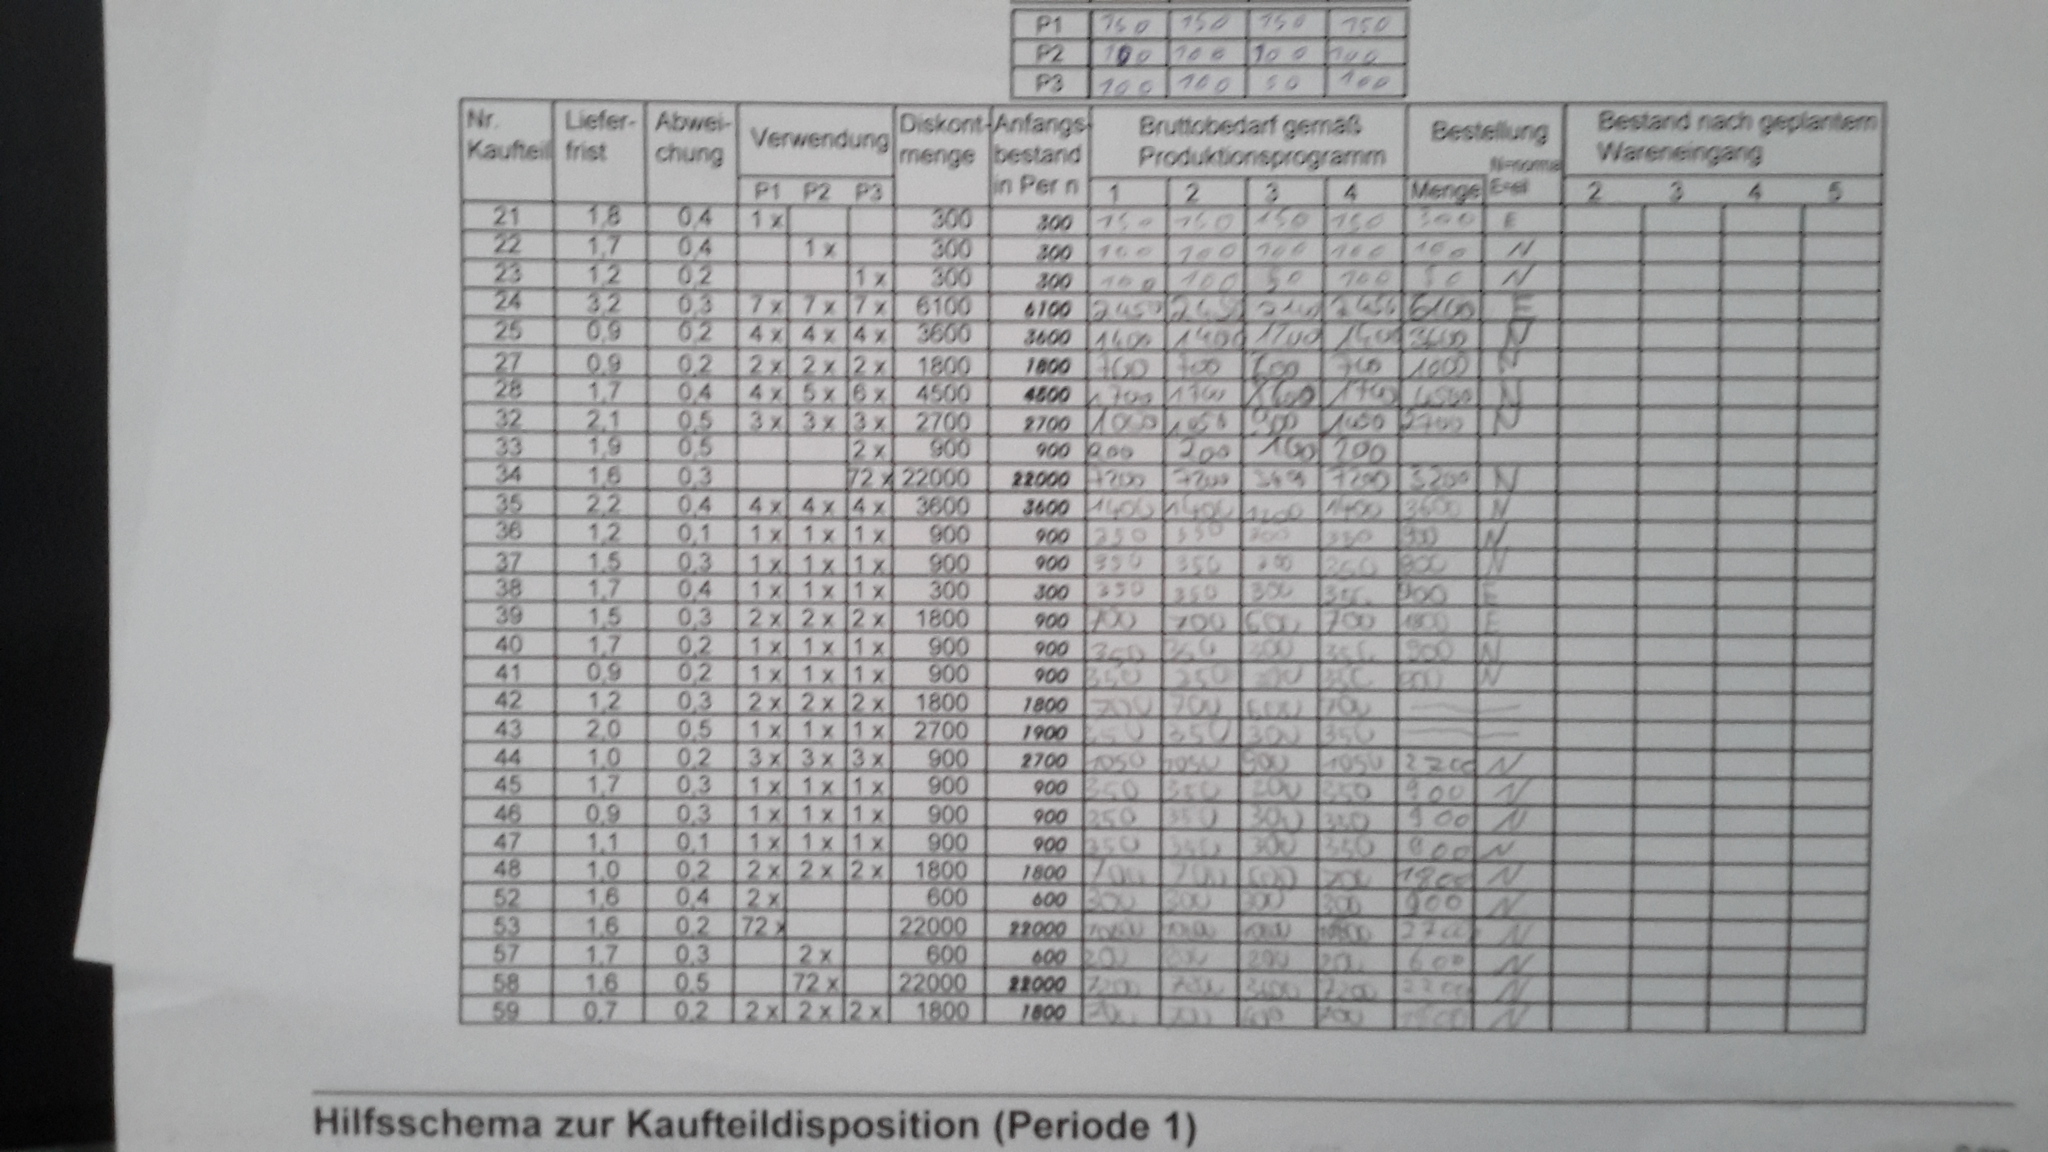 P1 150 150 150 150
P2 100 100 100 100
P3 100 100 50 100
Nr. Kaufteil Liefer-frist Abwei-chung Verwendung Diskont-menge Anfangs-bestand in Per n Bruttobedarf gemäß Produktionsprogramm Bestellung N=normal E=eil Bestand nach geplantem Wareneingang
P1 P2 P3 1 2 3 4 Menge 2 3 4 5
21 1,8 0,4 1 x 300 300 150 150 150 150 300 E
22 1,7 0,4 1 x 300 300 100 100 100 100 100 N
23 1,2 0,2 1 x 300 300 100 100 50 100 50 N
24 3,2 0,3 7 x 7 x 7 x 6100 6100 2450 2450 2100 2450 6100 E
25 0,9 0,2 4 x 4 x 4 x 3600 3600 1400 1400 1200 1400 3600 N
27 0,9 0,2 2 x 2 x 2 x 1800 1800 700 700 600 700 N
28 1,7 0,4 4 x 5 x 6 x 4500 4500 1700 1700 1700 4500 N
32 2,1 0,5 3 x 3 x 3 x 2700 2700 1050 900 1050 2700 N
33 1,9 0,5 2 x 900 900 200 200 100 200
34 1,6 0,3 72 x 22000 22000 7200 7200 7200 N
35 2,2 0,4 4 x 4 x 4 x 3600 3600 1400 1400 1200 1400 3600 N
36 1,2 0,1 1 x 1 x 1 x 900 900 350 350 300 350 900 N
37 1,5 0,3 1 x 1 x 1 x 900 900 350 350 350 900 N
38 1,7 0,4 1 x 1 x 1 x 300 300 350 350 300 350 900 E
39 1,5 0,3 2 x 2 x 2 x 1800 900 700 700 600 700 1800 E
40 1,7 0,2 1 x 1 x 1 x 900 900 350 350 300 350 900 N
41 0,9 0,2 1 x 1 x 1 x 900 900 350 350 N
42 1,2 0,3 2 x 2 x 2 x 1800 1800 700 700 600 700
43 2,0 0,5 1 x 1 x 1 x 2700 1900 350 350 300 350
44 1,0 0,2 3 x 3 x 3 x 900 2700 1050 1050 900 1050 N
45 1,7 0,3 1 x 1 x 1 x 900 900 350 350 350 900 N
46 0,9 0,3 1 x 1 x 1 x 900 900 350 350 300 350 900 N
47 1,1 0,1 1 x 1 x 1 x 900 900 350 350 300 350 900 N
48 1,0 0,2 2 x 2 x 2 x 1800 1800 700 700 600 700 1800 N
52 1,6 0,4 2 x 600 600 300 300 300 300 900 N
53 1,6 0,2 72 x 22000 22000 N
57 1,7 0,3 2 x 600 600 200 200 200 600 N
58 1,6 0,5 72 x 22000 22000 7200 7200 N
59 0,7 0,2 2 x 2 x 2 x 1800 1800 700 600 700 N
Hilfsschema zur Kaufteildisposition (Periode 1)